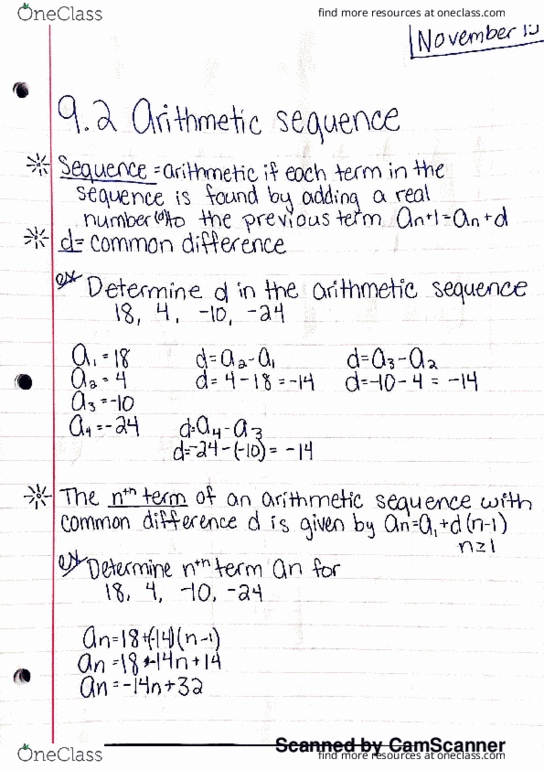 OneClass
find more resources at oneclass.com
November 10
9.2 Arithmetic sequence
Sequence = arithmetic if each term in the
sequence is found by adding a real
number (d) to the previous term an+1=an+d
d= common difference
ex Determine d in the arithmetic sequence
18, 4, -10, -24
a1=18 d=a2-a1 d=a3-a2
a2=4 d=4-18=-14 d=-10-4=-14
a3=-10
a4=-24 d=a4-a3
d=-24-(-10)=-14
The nth term of an arithmetic sequence with
common difference d is given by an=a1+d(n-1)
n≥1
ex Determine nth term an for
18, 4, -10, -24
an=18+(-14)(n-1)
an=18+-14n+14
an=-14n+32
Scanned by CamScanner
OneClass
find more resources at oneclass.com